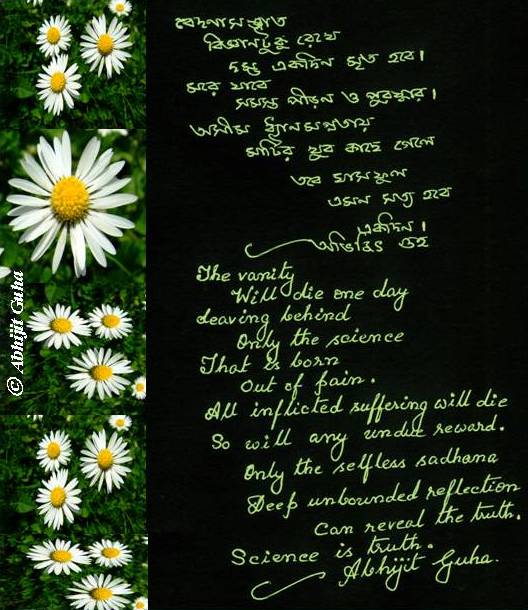 বেদনাসম্ভূত
বিজ্ঞানটুকু রেখে
দম্ভ একদিন মৃত হবে।
মরে যাবে
সমস্ত পীড়ন ও পুরস্কার।
অসীম ধ্যানমগ্নতায়
মাটির খুব কাছে গেলে
তবে ঘাসফুল
এমন সত্য হবে
একদিন।
অভিজিৎ গুহ
The vanity
Will die one day
Leaving behind
Only the science
That is born
Out of pain.
All inflicted suffering will die
So will any undue reward.
Only the selfless sadhana
Deep unbounded reflection
Can reveal the truth.
Science is truth.
Abhijit Guha.
© Abhijit Guha